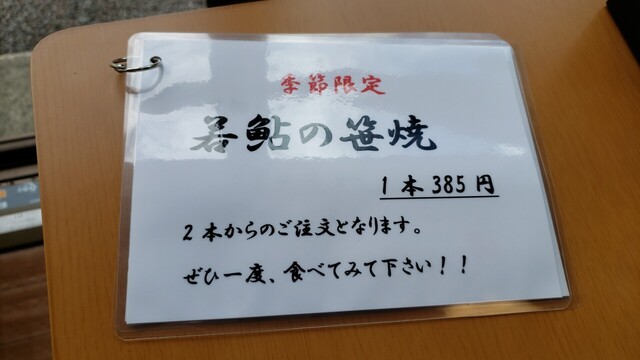 季節限定
若鮎の笹焼
1本385円
2本からのご注文となります。
ぜひ一度、食べてみて下さい！！